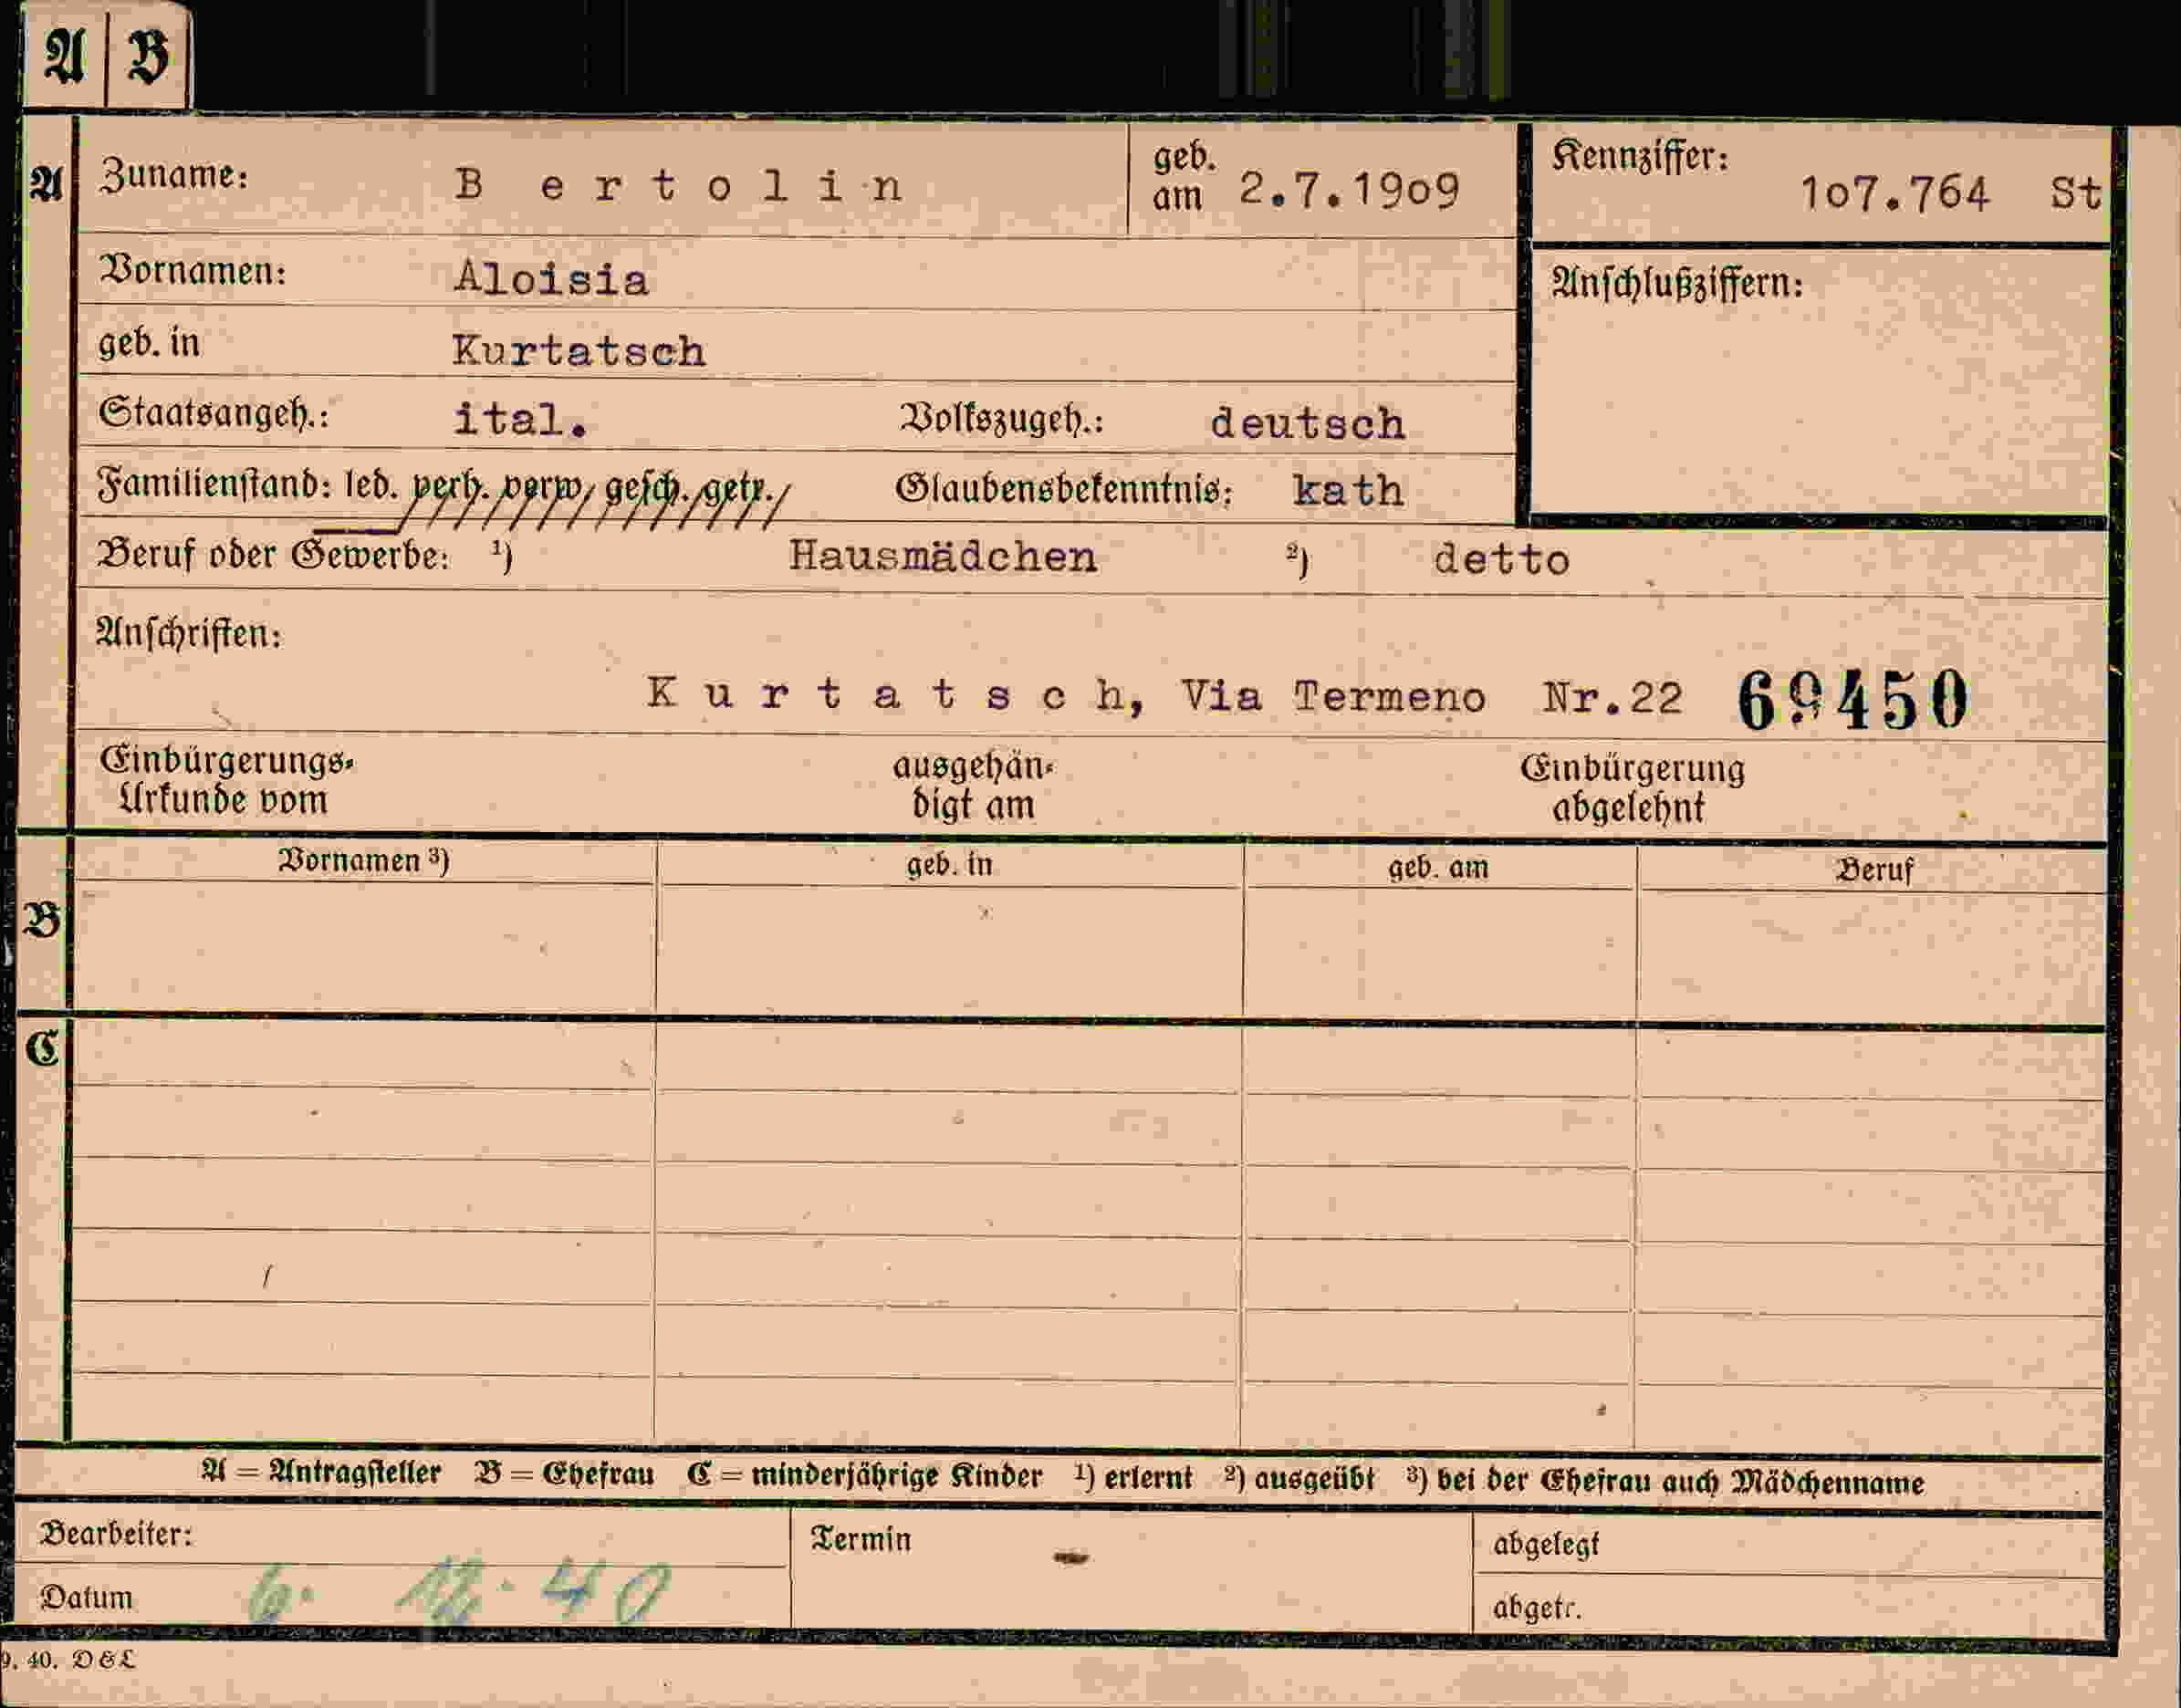 A B
A Zuname: B e r t o l i n geb. am 2.7.1909 Kennziffer: 107.764 St
Vornamen: Aloisia Anschlußziffern:
geb. in Kurtatsch
Staatsangeh.: ital. Volkszugeh.: deutsch
Familienstand: led. verh. verw. gesch. getr. Glaubensbekenntnis: kath
Beruf oder Gewerbe: ¹) Hausmädchen ²) detto
Anschriften:
K u r t a t s c h, Via Termeno Nr.22 69450
Einbürgerungs- ausgehän- Einbürgerung
Urkunde vom digt am abgelehnt
Vornamen ³) geb. in geb. am Beruf
B
C
A = Antragsteller B = Ehefrau C = minderjährige Kinder ¹) erlernt ²) ausgeübt ³) bei der Ehefrau auch Mädchenname
Bearbeiter: Termin abgelegt
Datum 6. 12. 40 abgetr.
9. 40. D&L